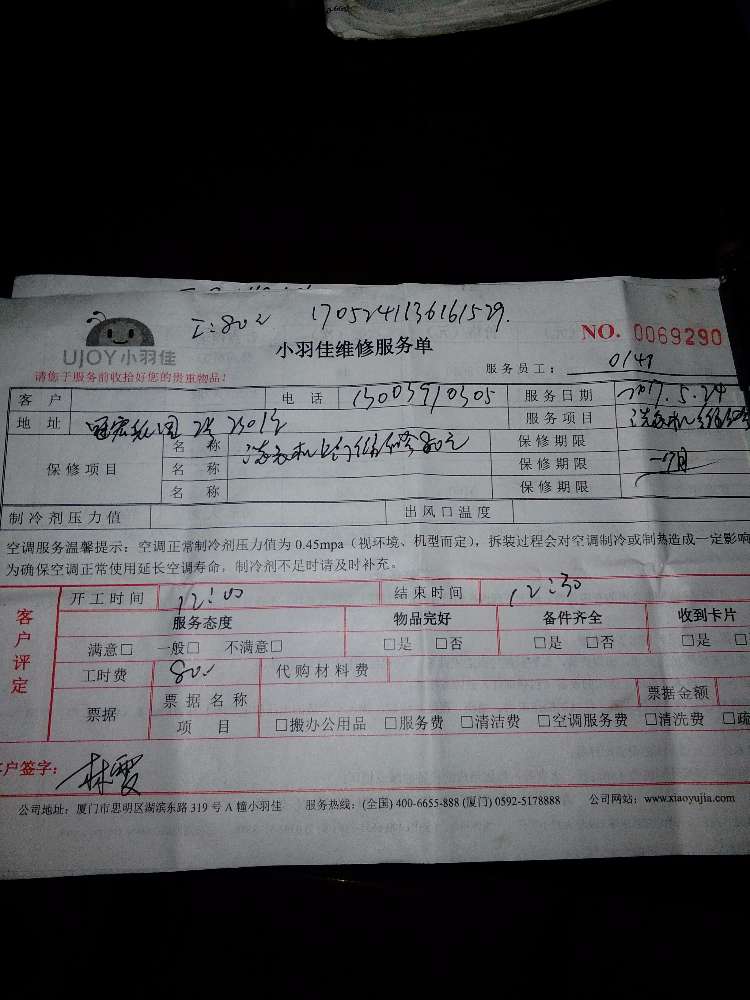 工:80元 1705241136161529.
UJOY小羽佳 小羽佳维修服务单 NO. 0069290
请您于服务前收拾好您的贵重物品! 服务员工:
客户 电话 13003910305 服务日期 2017.5.24
地址 2301 服务项目 洗衣机维修
保修项目 名称 洗衣机上门维修80元 保修期限
名称 保修期限 一个月
名称 保修期限
制冷剂压力值 出风口温度
空调服务温馨提示:空调正常制冷剂压力值为 0.45mpa(视环境、机型而定),拆装过程会对空调制冷或制热造成一定影响
为确保空调正常使用延长空调寿命,制冷剂不足时请及时补充。
客户评定
开工时间 12:00 结束时间 12:30
服务态度 物品完好 备件齐全 收到卡片
满意□ 一般□ 不满意□ □是 □否 □是 □否 □是 □
工时费 80 代购材料费
票据 票据名称 票据金额
项目 □搬办公用品 □服务费 □清洁费 □空调服务费 □清洗费 □疏
户签字: 林霞
公司地址:厦门市思明区湖滨东路 319 号 A 幢小羽佳 服务热线:(全国) 400-6655-888 (厦门) 0592-5178888 公司网站:www.xiaoyujia.com